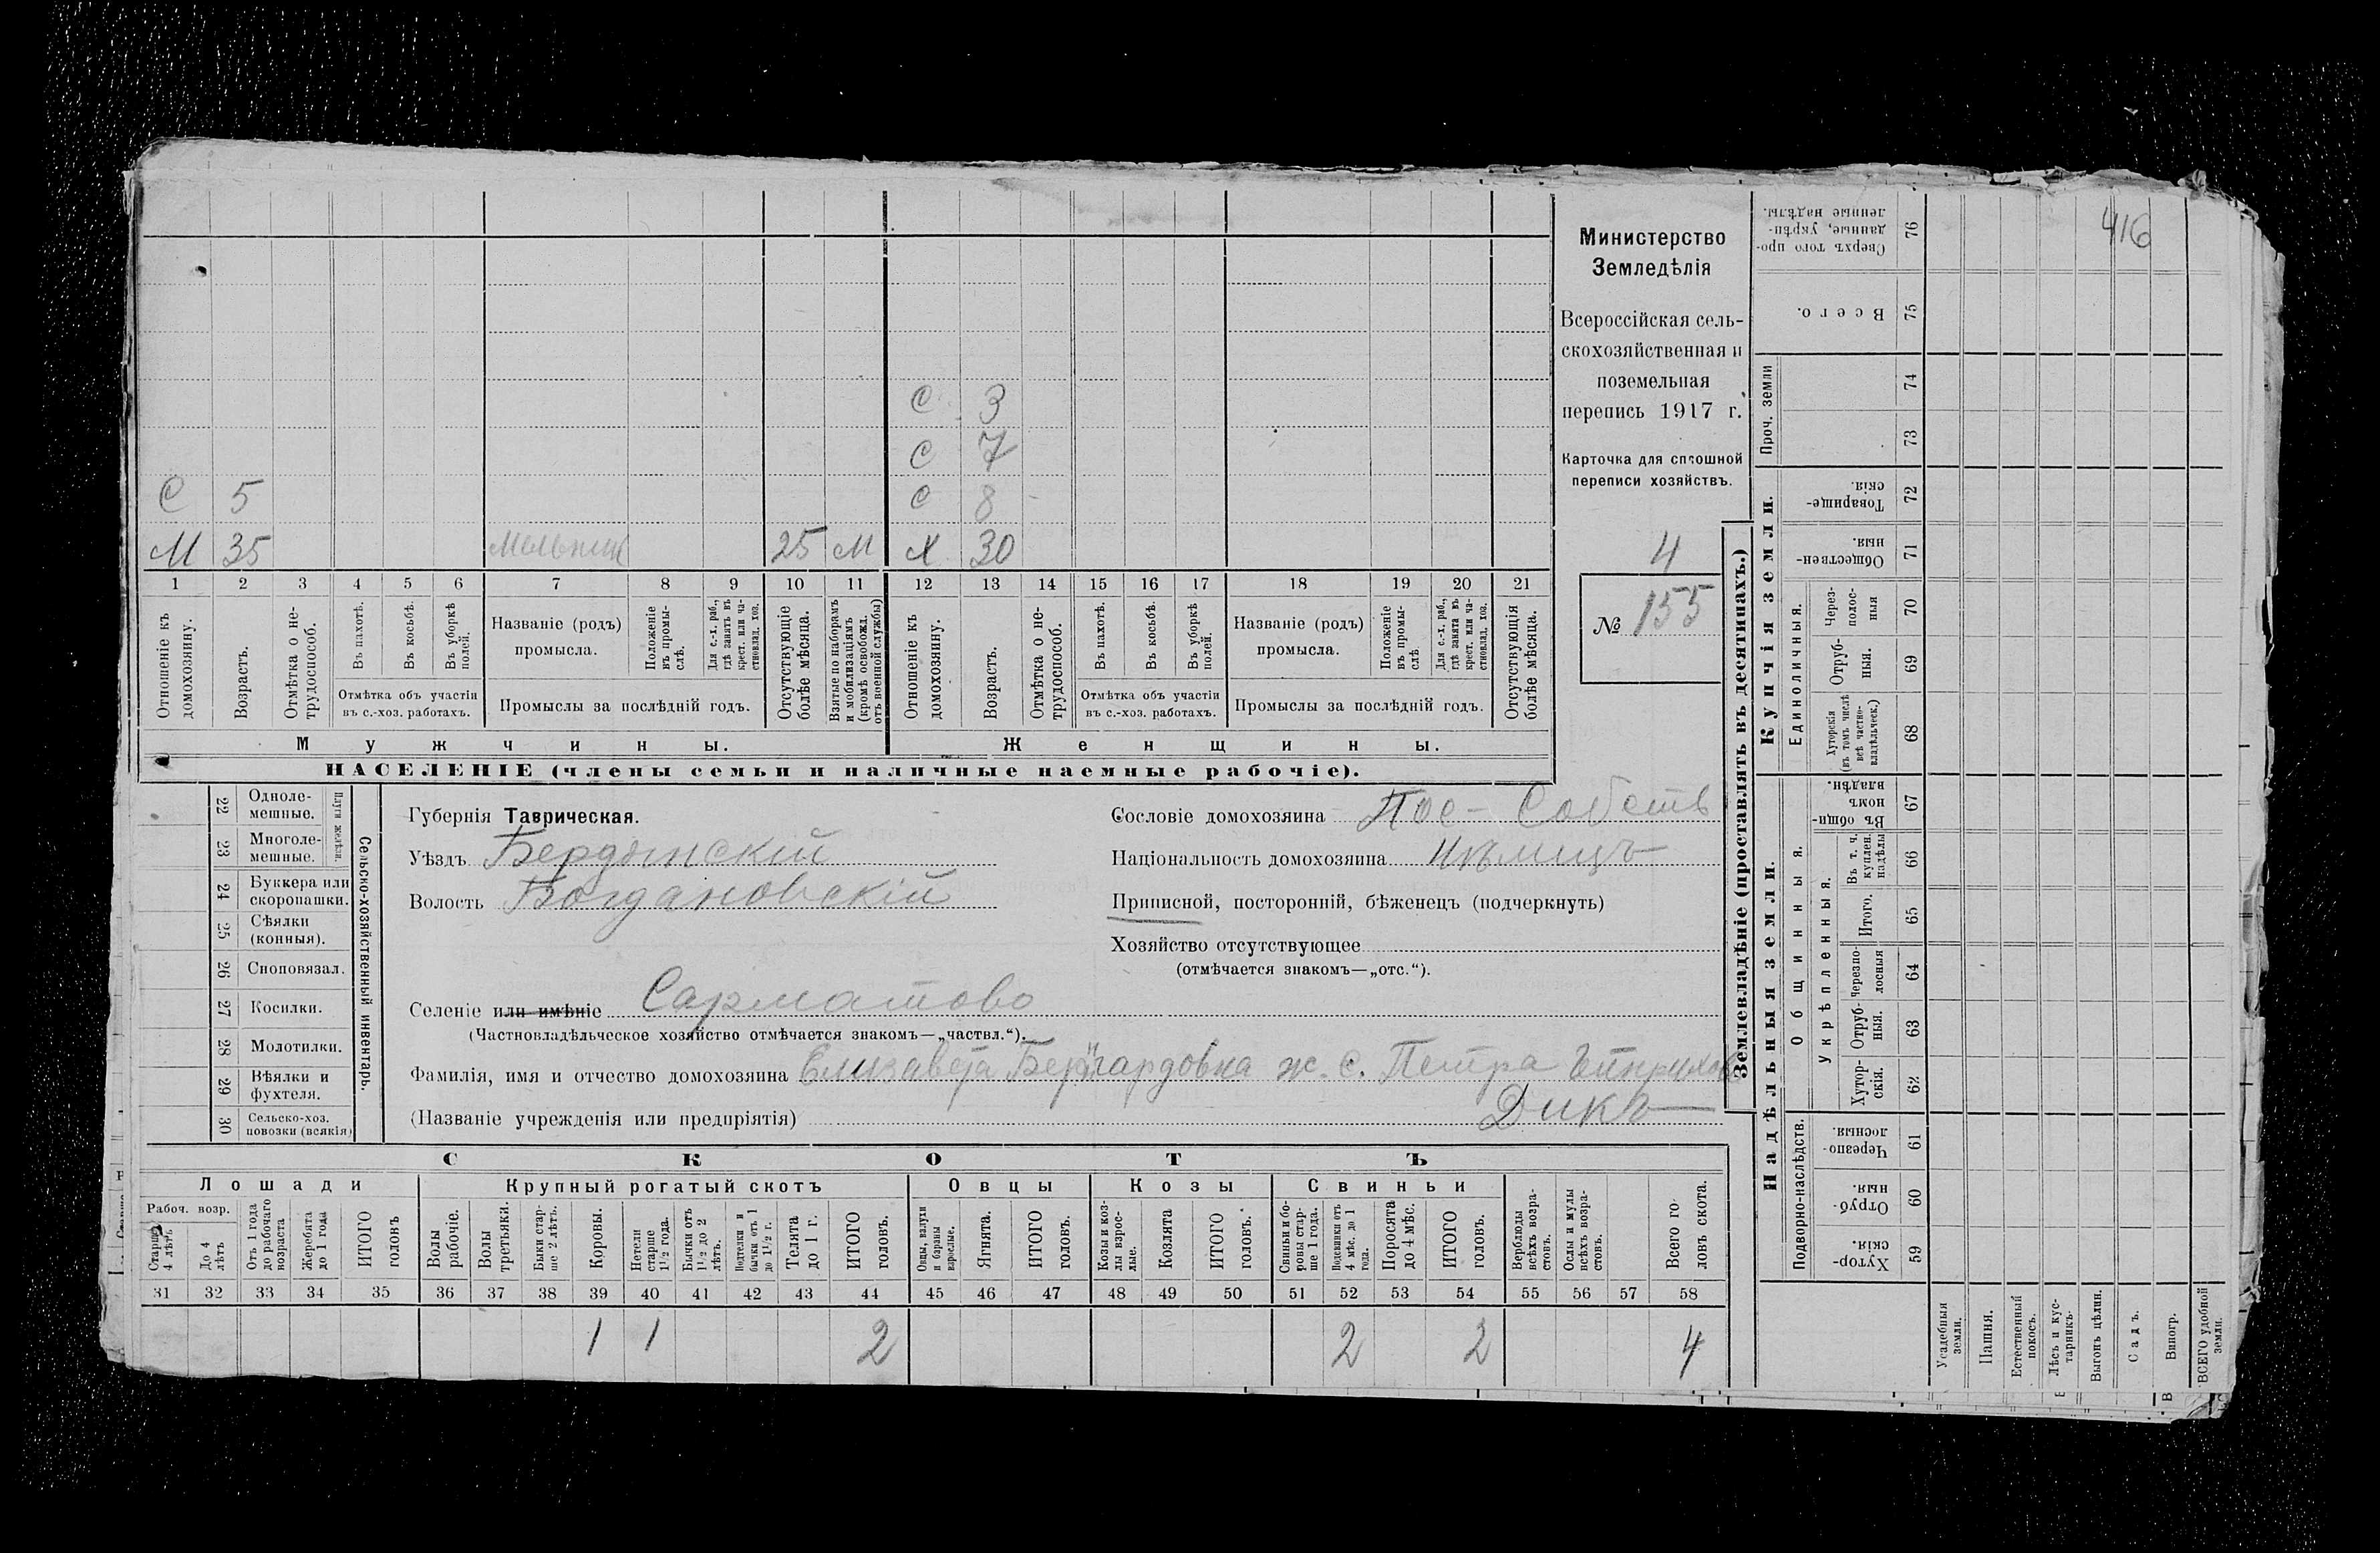 416
Министерство
Земледѣлія
Всероссійская сель-
скохозяйственная и
поземельная
перепись 1917 г.
Карточка для сплошной
переписи хозяйствъ.
4
№ 155
С 3
С 7
С 5 С 8
М 35 Мельник 25 М Х 30
1 2 3 4 5 6 7 8 9 10 11 12 13 14 15 16 17 18 19 20 21
Отношеніе къ домохозяину.
Возрастъ.
Отмѣтка о не-трудоспособ.
Въ пахотѣ.
Въ косьбѣ.
Въ уборкѣ полей.
Отмѣтка объ участіи
въ с.-хоз. работахъ.
Названіе (родъ)
промысла.
Положеніе въ промы-слѣ.
Для с.-х. раб., гдѣ занятъ въ крест. или ча-стновлад. хоз.
Промыслы за послѣдній годъ.
Отсутствующіе болѣе мѣсяца.
Взятые по наборамъ и мобилизаціямъ (кромѣ освобожд. отъ военной службы)
Отношеніе къ домохозяину.
Возрастъ.
Отмѣтка о не-трудоспособ.
Въ пахотѣ.
Въ косьбѣ.
Въ уборкѣ полей.
Отмѣтка объ участіи
въ с.-хоз. работахъ.
Названіе (родъ)
промысла.
Положеніе въ промы-слѣ
Для с.-х. раб., гдѣ занята въ крест. или ча-стновлад. хоз.
Промыслы за послѣдній годъ.
Отсутствующія болѣе мѣсяца.
Мужчины.
Женщины.
НАСЕЛЕНІЕ (члены семьи и наличные наемные рабочіе).
22 Одноле-мешные.
23 Многоле-мешные.
Плуги желѣзн.
24 Буккера или скоропашки.
25 Сѣялки (конныя).
26 Сноповязал.
27 Косилки.
28 Молотилки.
29 Вѣялки и фухтеля.
30 Сельско-хоз. повозки (всякія)
Сельско-хозяйственный инвентарь.
Губернія Таврическая.
Уѣздъ Бердянскій
Волость Богдановскій
Сословіе домохозяина Пос- Собств
Національность домохозяина Нѣмецъ
Приписной, посторонній, бѣженецъ (подчеркнуть)
Хозяйство отсутствующее
(отмѣчается знакомъ—„отс.“).
Селеніе или имѣніе Сарматово
(Частновладѣльческое хозяйство отмѣчается знакомъ—„частвл.“).
Фамилія, имя и отчество домохозяина Елизавета Бернгардовна ж. с. Петра
Дикъ
(Названіе учрежденія или предпріятія)
СКОТЪ
Лошади
Крупный рогатый скотъ
Овцы
Козы
Свиньи
Рабоч. возр.
Старше 4 лѣтъ
До 4 лѣтъ
Отъ 1 года до рабочаго возраста
Жеребята до 1 года
ИТОГО головъ
Волы рабочіе.
Волы третьяки.
Быки стар-ше 2 лѣтъ.
Коровы.
Нетели старше 1½ года.
Бычки отъ 1½ до 2 лѣтъ.
Подтелки и бычки отъ 1 до 1½ г.
Телята до 1 г.
ИТОГО головъ.
Овцы, валухи и бараны взрослые.
Ягнята.
ИТОГО головъ.
Козы и коз-лы взрос-лые.
Козлята
ИТОГО головъ.
Свиньи и бо-ровы стар-ше 1 года.
Подсвинки отъ 4 мѣс. до 1 года.
Поросята до 4 мѣс.
ИТОГО головъ.
Верблюды всѣхъ возра-стовъ.
Ослы и мулы всѣхъ возра-стовъ.
Всего го-ловъ скота.
31 32 33 34 35 36 37 38 39 40 41 42 43 44 45 46 47 48 49 50 51 52 53 54 55 56 57 58
1 1 2 2 2 4
Землевладѣніе (проставлять въ десятинахъ.)
Купчія земли.
Надѣльныя земли.
76 Сверхъ того про-данные, укрѣп-ленные надѣлы.
75 Всего.
Проч. земли
74
73
72 Товарище-скія.
71 Обществен-ныя.
Единоличныя.
70 Через-полос-ныя
69 Отруб-ныя.
68 Хуторскія (въ томъ числѣ всѣ частно-владѣльческ.)
Общинныя.
67 Въ общин-номъ владѣн.
Укрѣпленныя.
66 Въ т. ч. куплен. надѣлы
65 Итого.
64 Черезпо-лосныя
63 Отруб-ныя.
62 Хутор-скія.
Подворно-наслѣдств.
61 Черезпо-лосныя.
60 Отруб-ныя.
59 Хутор-скія.
Усадебныя земли.
Пашня.
Естественный покосъ.
Лѣсъ и кус-тарникъ.
Выгонъ цѣлин.
Садъ.
Виногр.
ВСЕГО удобной земли.